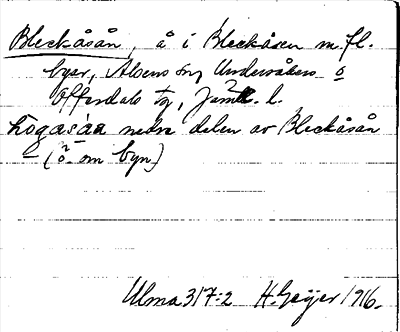 Bleckåsån, å i Bleckåsen m.fl.
byar, Alsens sn, Undersåkers o
Offerdals tg, Jämtl. l.
hogasaa nedre delen av Bleckåsån
(o om byn)
Ulma 317:2 H. Geijer 1916.